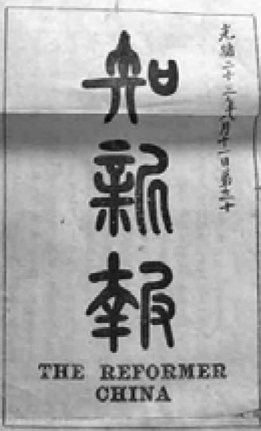 光緒二十三年八月十一日第三十
知新報
THE REFORMER
CHINA